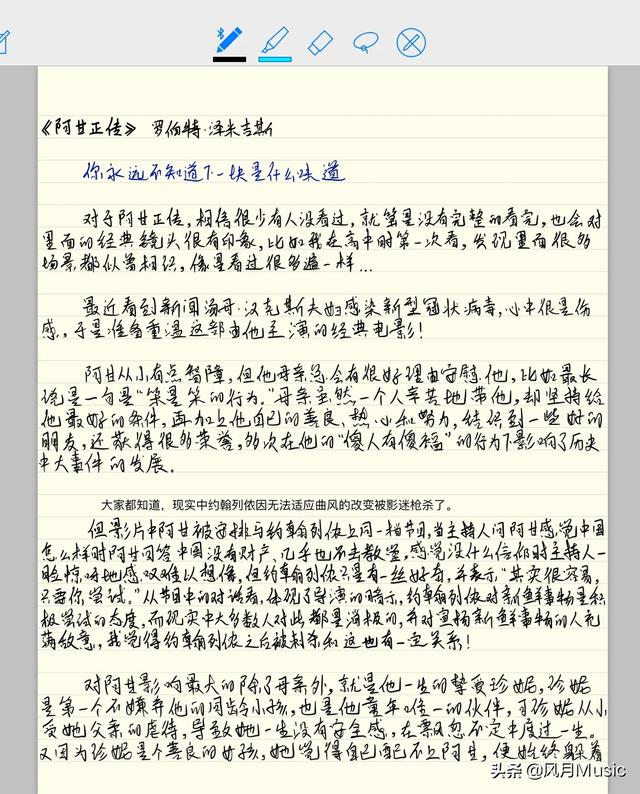 《阿甘正传》 罗伯特·泽米吉斯
你永远不知道下一块是什么味道
对于阿甘正传,相信很少有人没看过,就算是没有完整的看完,也会对
里面的经典镜头很有印象,比如我在高中时第一次看,发现里面很多
场景都似曾相识,像是看过很多遍一样...
最近看到新闻汤姆·汉克斯夫妇感染新型冠状病毒,心中很是伤
感,于是准备重温这部由他主演的经典电影!
阿甘从小有点智障,但他母亲总会有很好理由安慰他,比如最长
说是一句是“笨是笨的行为。”母亲虽然一个人辛苦地带他,却坚持给
他最好的条件,再加上他自己的善良、热心和努力,结识到一些好的
朋友,还获得很多荣誉,多次在他的“傻人有傻福”的行为下影响了历史
中大事件的发展。
大家都知道,现实中约翰列侬因无法适应曲风的改变被影迷枪杀了。
但影片中阿甘被安排与约翰列侬上同一档节目,当主持人问阿甘感觉中国
怎么样时阿甘回答中国没有财产、几乎也不去教堂,感觉没什么信仰时主持人一
脸惊讶地感叹难以想像,但约翰列侬只是有一丝好奇,并表示“其实很容易,
只要你尝试。”从节目中的对话看,体现了导演的暗示,约翰列侬对新鲜事物是积
极尝试的态度,而现实中大多数人对此都是消极的,并对宣扬新鲜事物的人充
满敌意,我觉得约翰列侬之后被刺杀和这也有一定关系!
对阿甘影响最大的除了母亲外,就是他一生的挚爱珍妮,珍妮
是第一个不嫌弃他的同龄小孩,也是他童年唯一的伙伴,可珍妮从小
受她父亲的虐待,导致她一生没有安全感,在飘忽不定中度过一生。
又因为珍妮是个善良的女孩,她觉得自己配不上阿甘,便始终躲着
头条 @风月Music